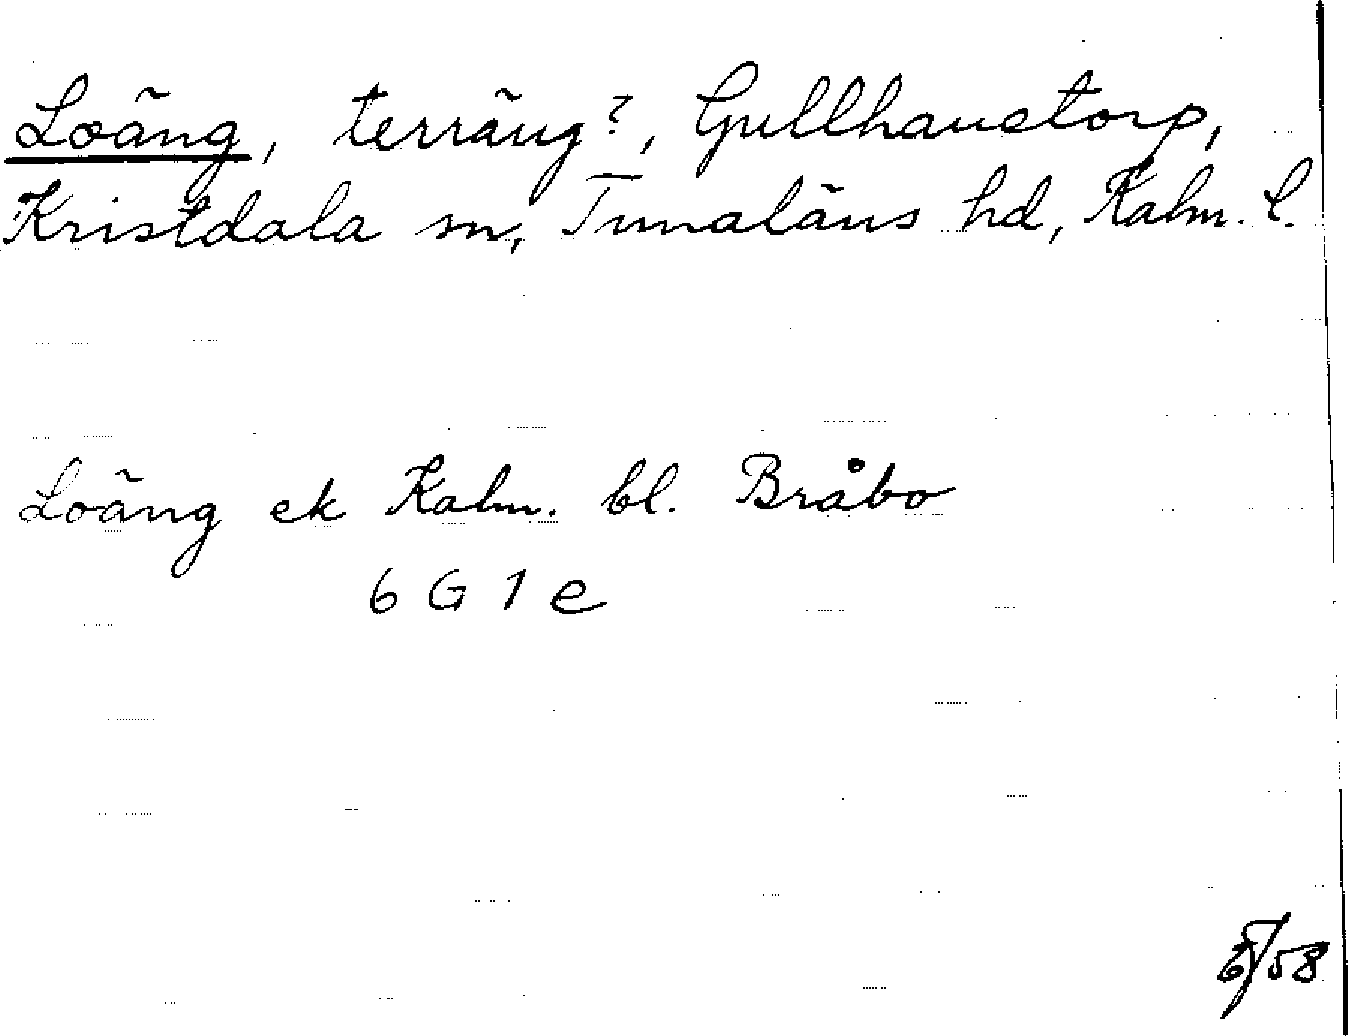 Loäng, terräng?, Gullhanetorp,
Kristdala sn, Tunaläns hd, Kalm. l.
Loäng ek Kalm. bl. Bråbo
6 G 1 e